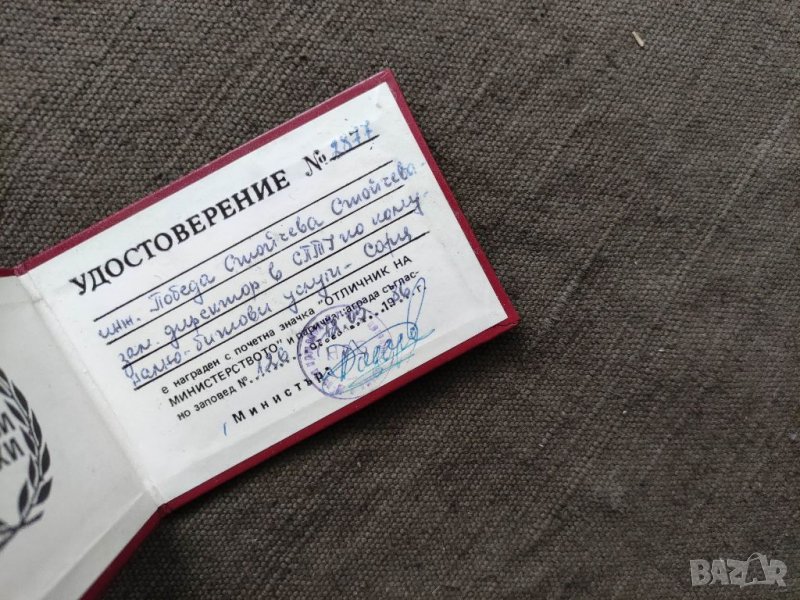 УДОСТОВЕРЕНИЕ № 2877
инж. Победа Стойчева Стойчева -
зам. директор в СПТУ по кому-
нално-битови услуги - София
е награден с почетна значка "ОТЛИЧНИК НА
МИНИСТЕРСТВОТО" и парична награда съглас-
но заповед №
Министър:
И
ХИ
BAZAR